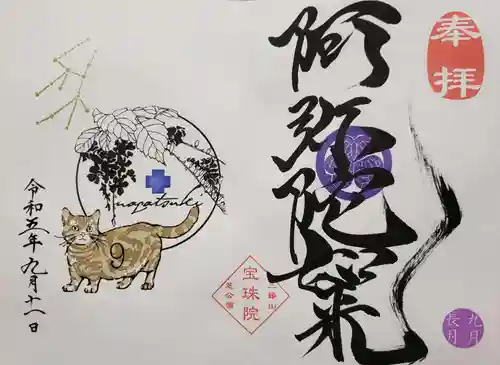 奉拝
阿弥陀如来
九月
長月
nagatsuki
9
三緑山
宝珠院
芝公園
令和五年九月十一日